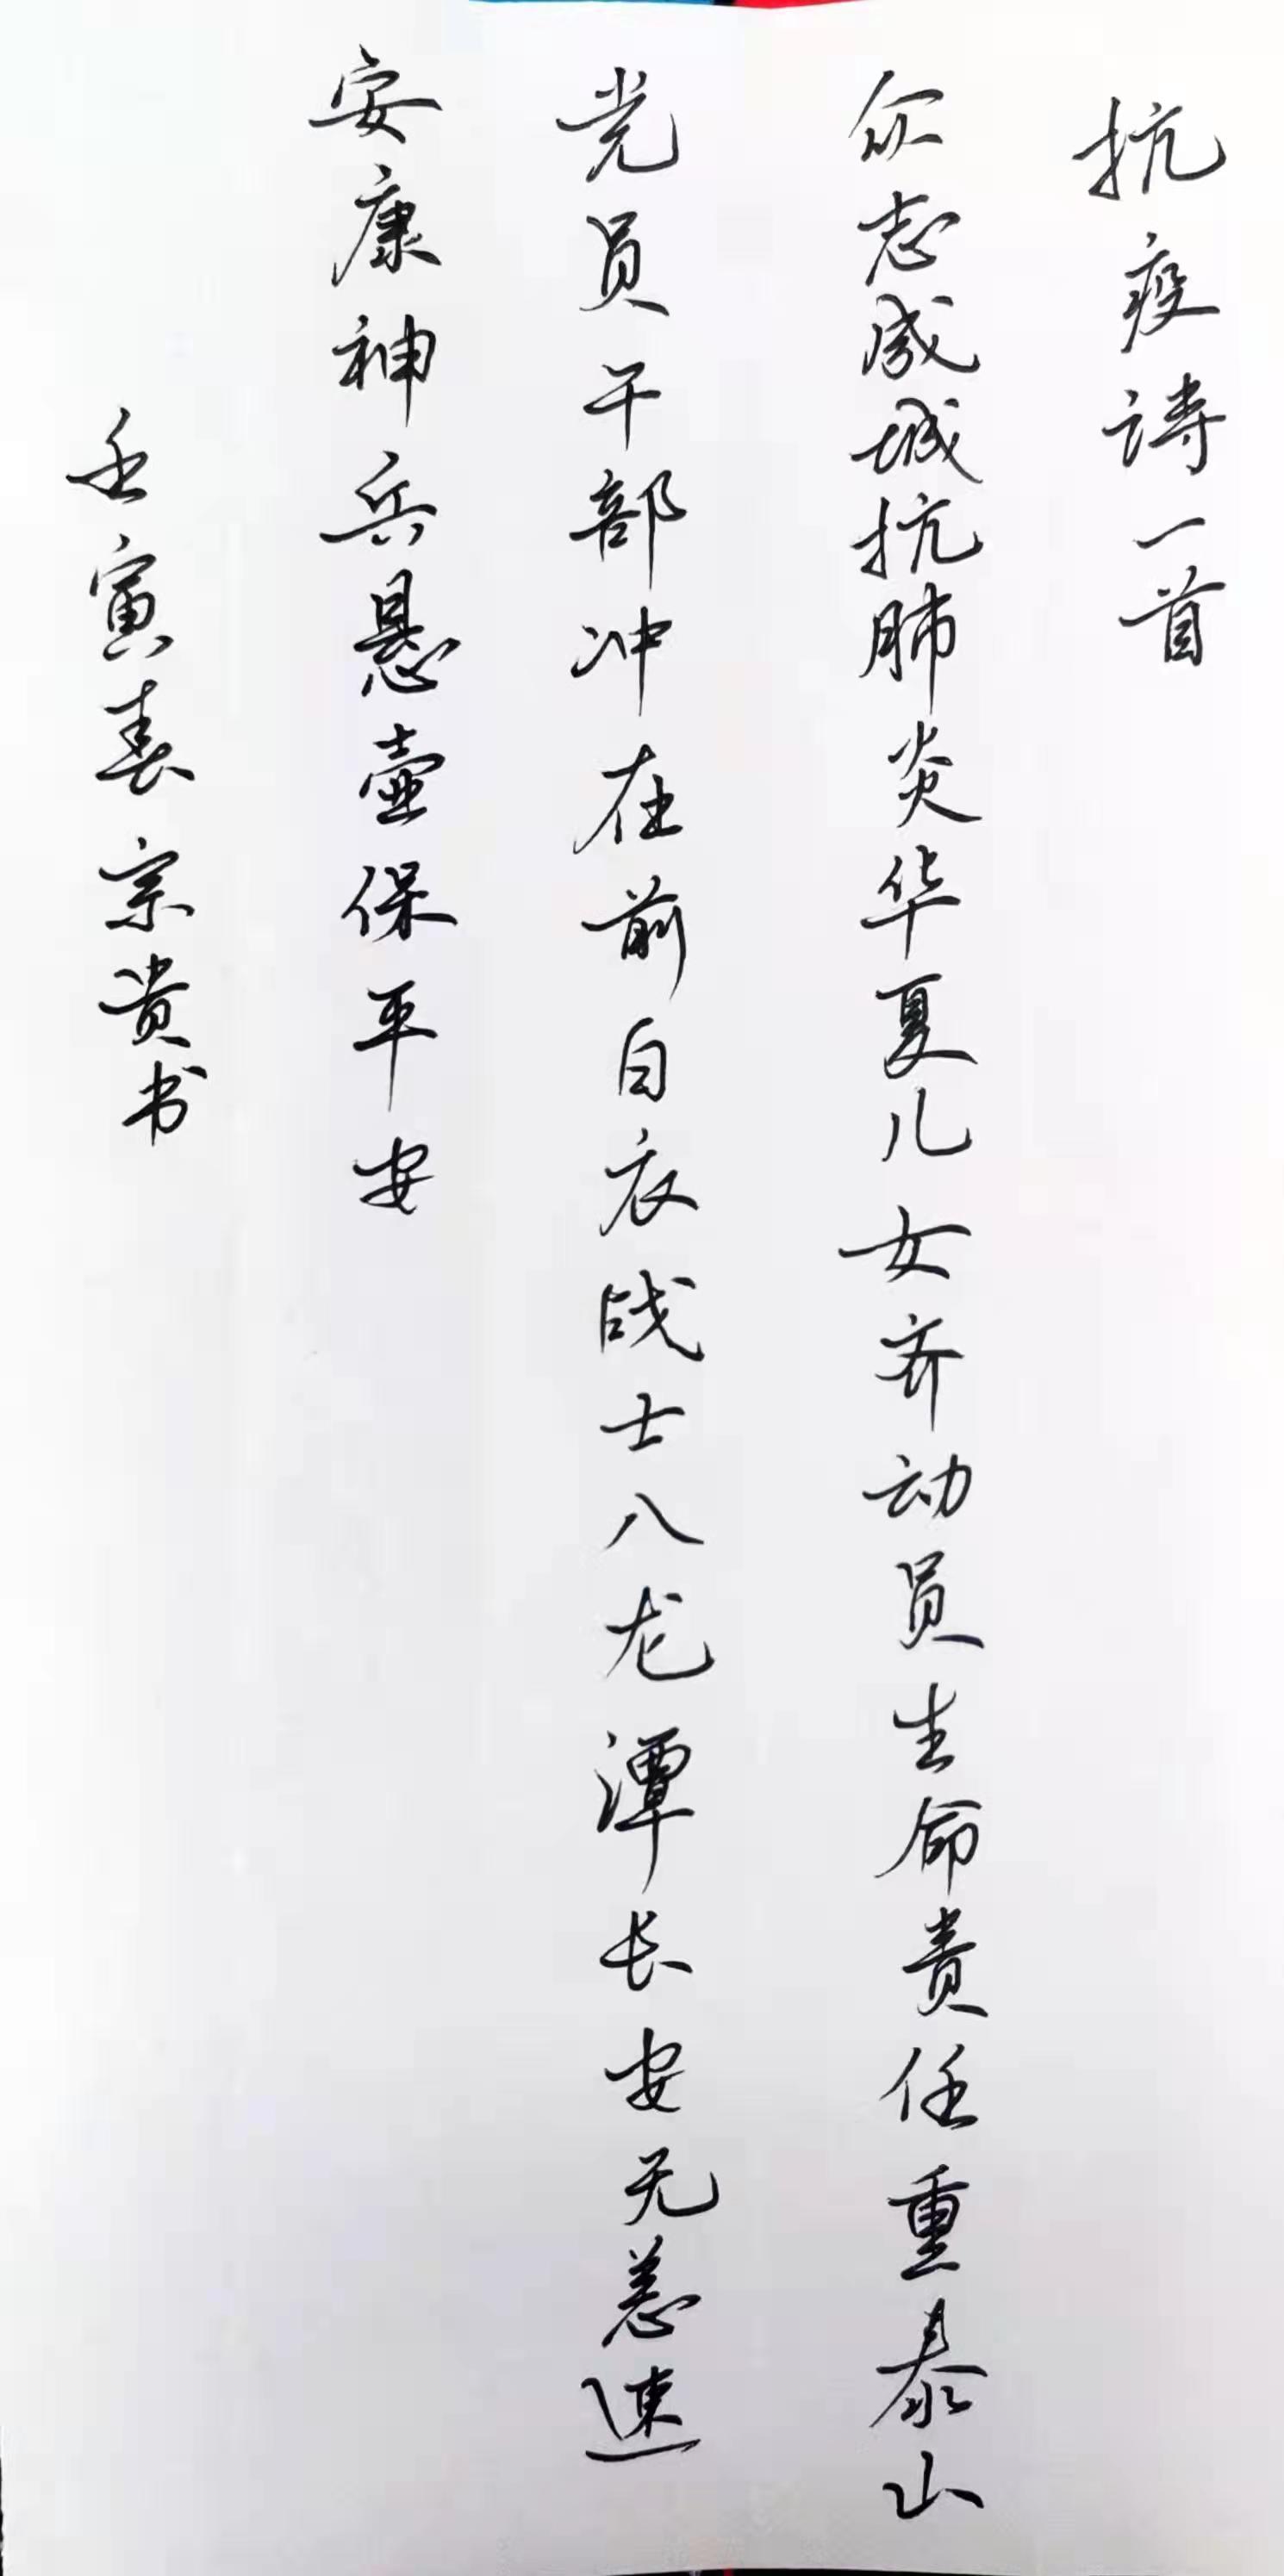 抗疫诗一首
众志成城抗肺炎华夏儿女齐动员生命责任重泰山
党员干部冲在前白衣战士八龙潭长安无恙速
安康神兵悬壶保平安
壬寅春宗贵书